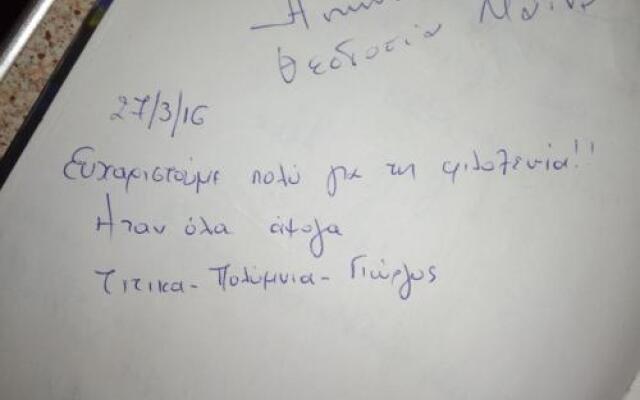 Θεοδοσία
27/3/16
Ευχαριστούμε πολύ για τη φιλοξενία!!
Ηταν όλα άψογα
Τιτικα - Πολύμνια - Γιώργος